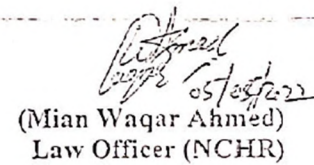 05/08/2022
(Mian Waqar Ahmed)
Law Officer (NCHR)